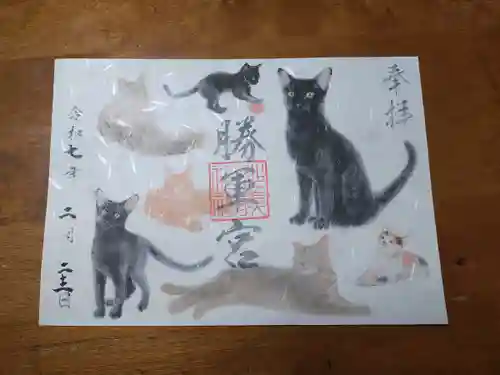 奉拝
勝軍宮
令和七年二月二十二日